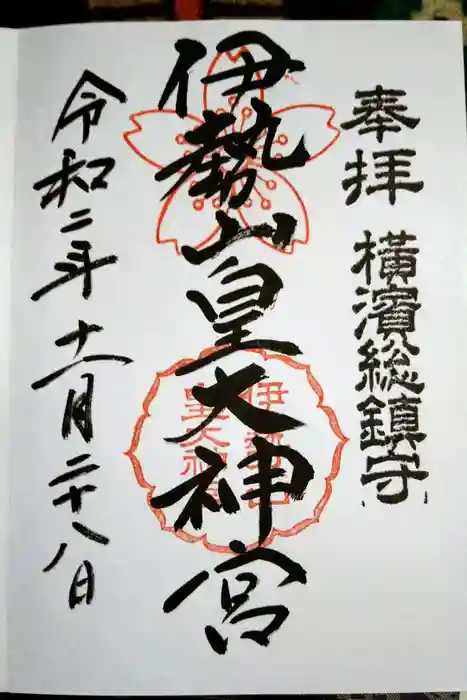 奉拝 横濱総鎮守
伊勢山皇大神宮
伊勢山
皇大神宮
令和二年十一月二十八日